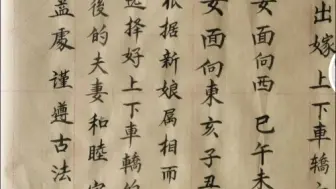 出嫁上下車轎
女面向西 巳午未
女面向東亥子丑
根据新娘属相而
选择好上下車轎的
後的夫妻和睦
蓋處 謹遵古法